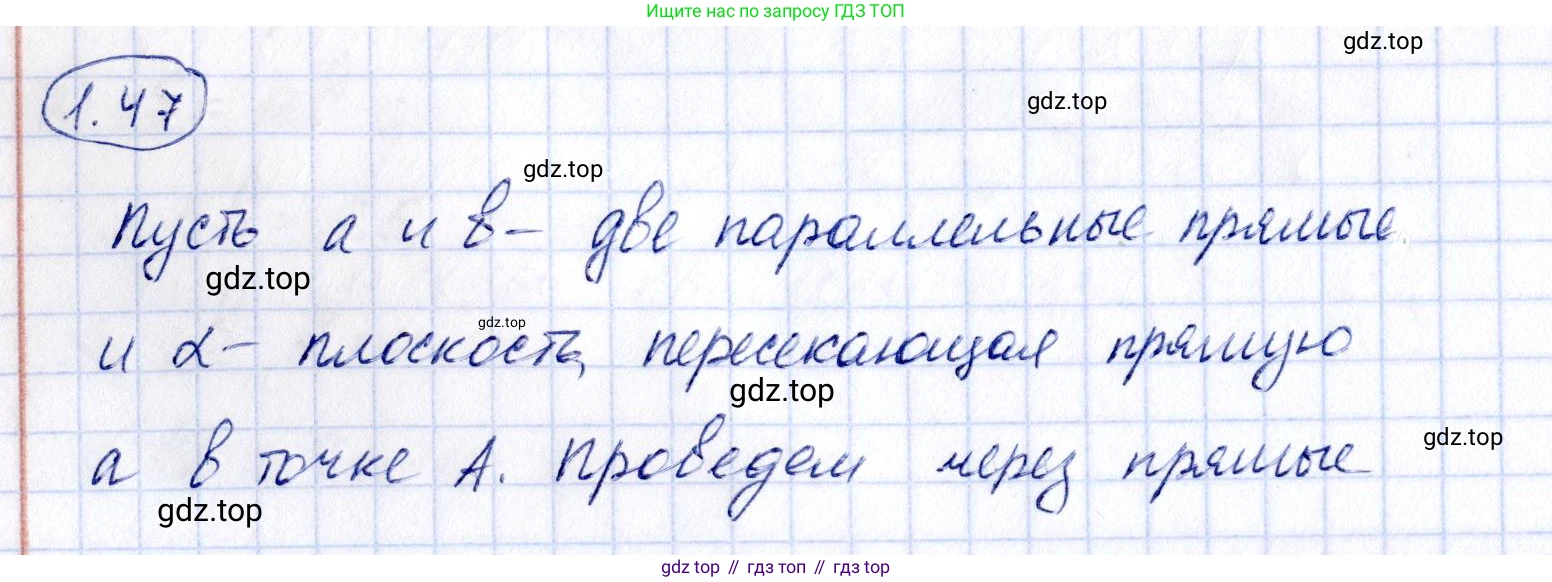 Ищите нас по запросу ГДЗ ТОП
gdz.top
1.47
gdz.top
gdz.top
Пусть a и b – две параллельные прямые
gdz.top
gdz.top
и α – плоскость, пересекающая прямую
gdz.top
gdz.top
a в точке A. Проведем через прямые
gdz.top
gdz.top // гдз топ // гдз top